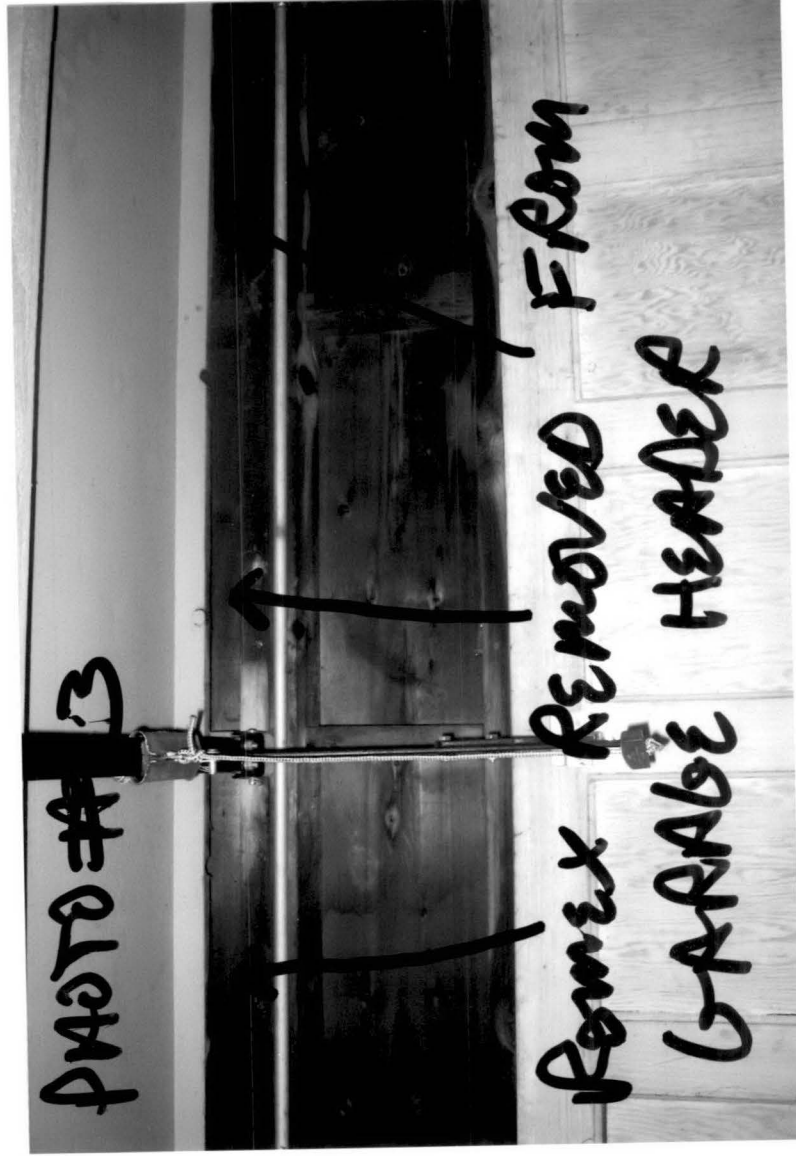 PHOTO #3
ROMEX REMOVED FROM
GARAGE HEADER